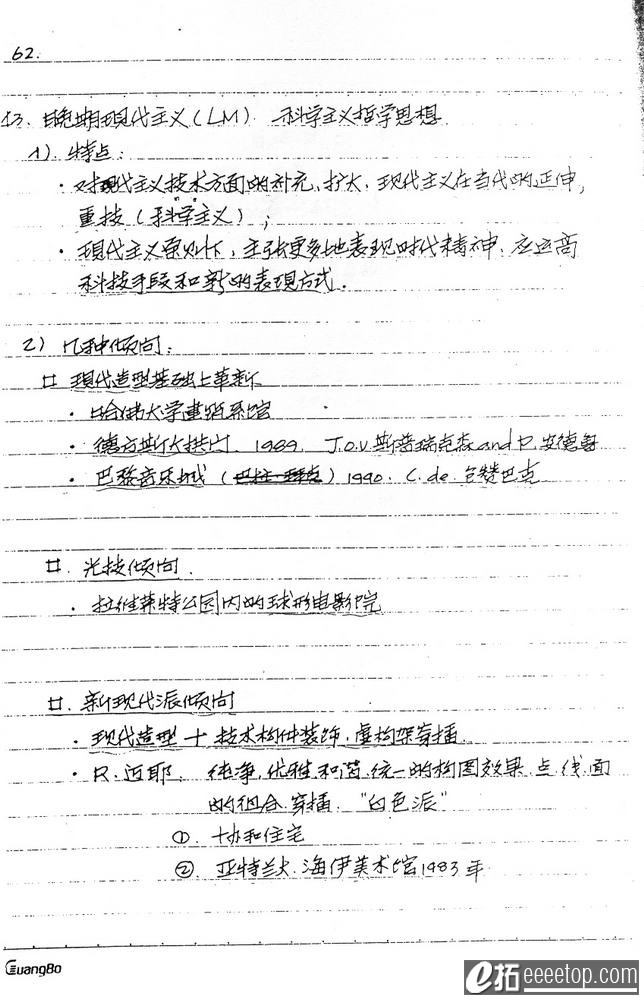 62.
13. 晚期现代主义(LM) 科学主义哲学思想
1). 特点:
· 对现代主义技术方面的补充、扩大, 现代主义在当代的延伸,
重技(科学主义);
· 现代主义原则下, 主张更多地表现时代精神. 应运高
科技手段和新的表现方式.
2) 几种倾向:
现代造型基础上革新
· 哈佛大学建筑系馆
· 德方斯大拱门. 1989. J.O.V.斯普瑞克森and P.安德鲁
· 巴黎音乐城 () 1990. C. de. 包赞巴克
光技倾向.
· 拉维莱特公园内的球形电影院
新现代派倾向
· 现代造型 + 技术构件装饰, 虚构架穿插.
· R. 迈耶. 纯净, 优雅和谐, 统一的构图效果. 点. 线. 面
的组合. 穿插. "白色派"
①. 协和住宅
②. 亚特兰大. 海伊美术馆 1983年
GuangBo
e拓 eeeetop.com